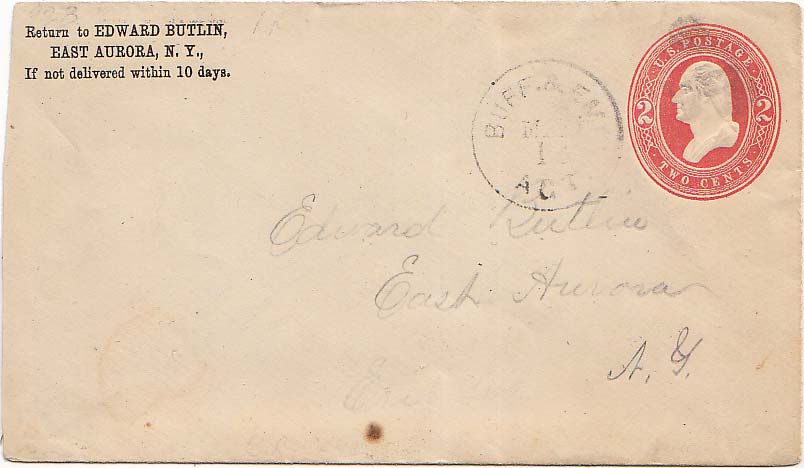 Return to EDWARD BUTLIN,
EAST AURORA, N. Y.,
If not delivered within 10 days.
U.S. POSTAGE
2 2
TWO CENTS
BUFF. & EM
AGT.
Edward Butlin
East Aurora
N. Y.